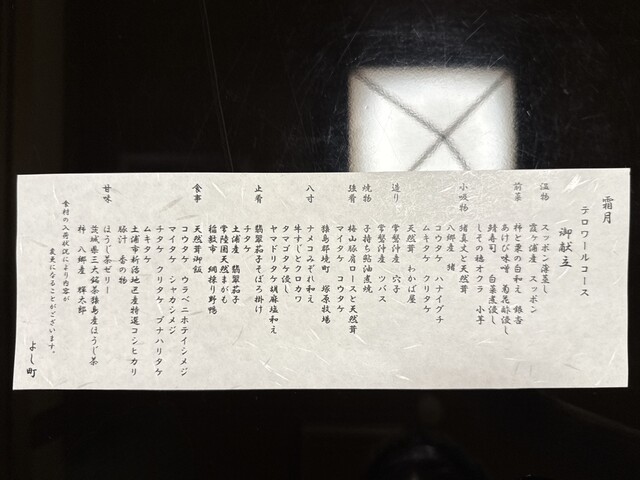 霜月
テロワールコース
御献立
温物
スッポン薄葱し
霞ヶ浦産 スッポン
前菜
柿と栗の白和え 銀杏
あけび味噌 菊花
鯖寿司 白菜
しその穂オクラ 小芋
小吸物
猪真丈と天然茸
八郷産 猪
コウタケ ハナイグチ
ムキタケ クリタケ
天然茸 わかば屋
造り
常磐沖産 穴子
常磐沖産 ツバス
焼物
子持ち鮎油煮焼
強肴
梅山豚肩ロースと天然茸
マイタケ コウタケ
猿島郡境町 塚原牧場
八寸
ナメコみぞれ和え
牛すじとクロカワ
タマゴタケ浸し
ヤマドリタケ胡麻塩和え
チタケ
止肴
翡翠茄子そぼろ掛け
土浦産 翡翠茄子
常陸国天然まがも
稲敷市 網捕り野鴨
食事
天然茸御飯
コウタケ ウラベニホテイシメジ
マイタケ シャカシメジ
チタケ クリタケ ブナハリタケ
ムキタケ
土浦市新治地区産特選コシヒカリ
豚汁 香の物
甘味
ほうじ茶ゼリー
茨城県三大銘茶猿島産ほうじ茶
柿 八郷産 輝太郎
食材の入荷状況により内容が
変更になることがございます。
よし町